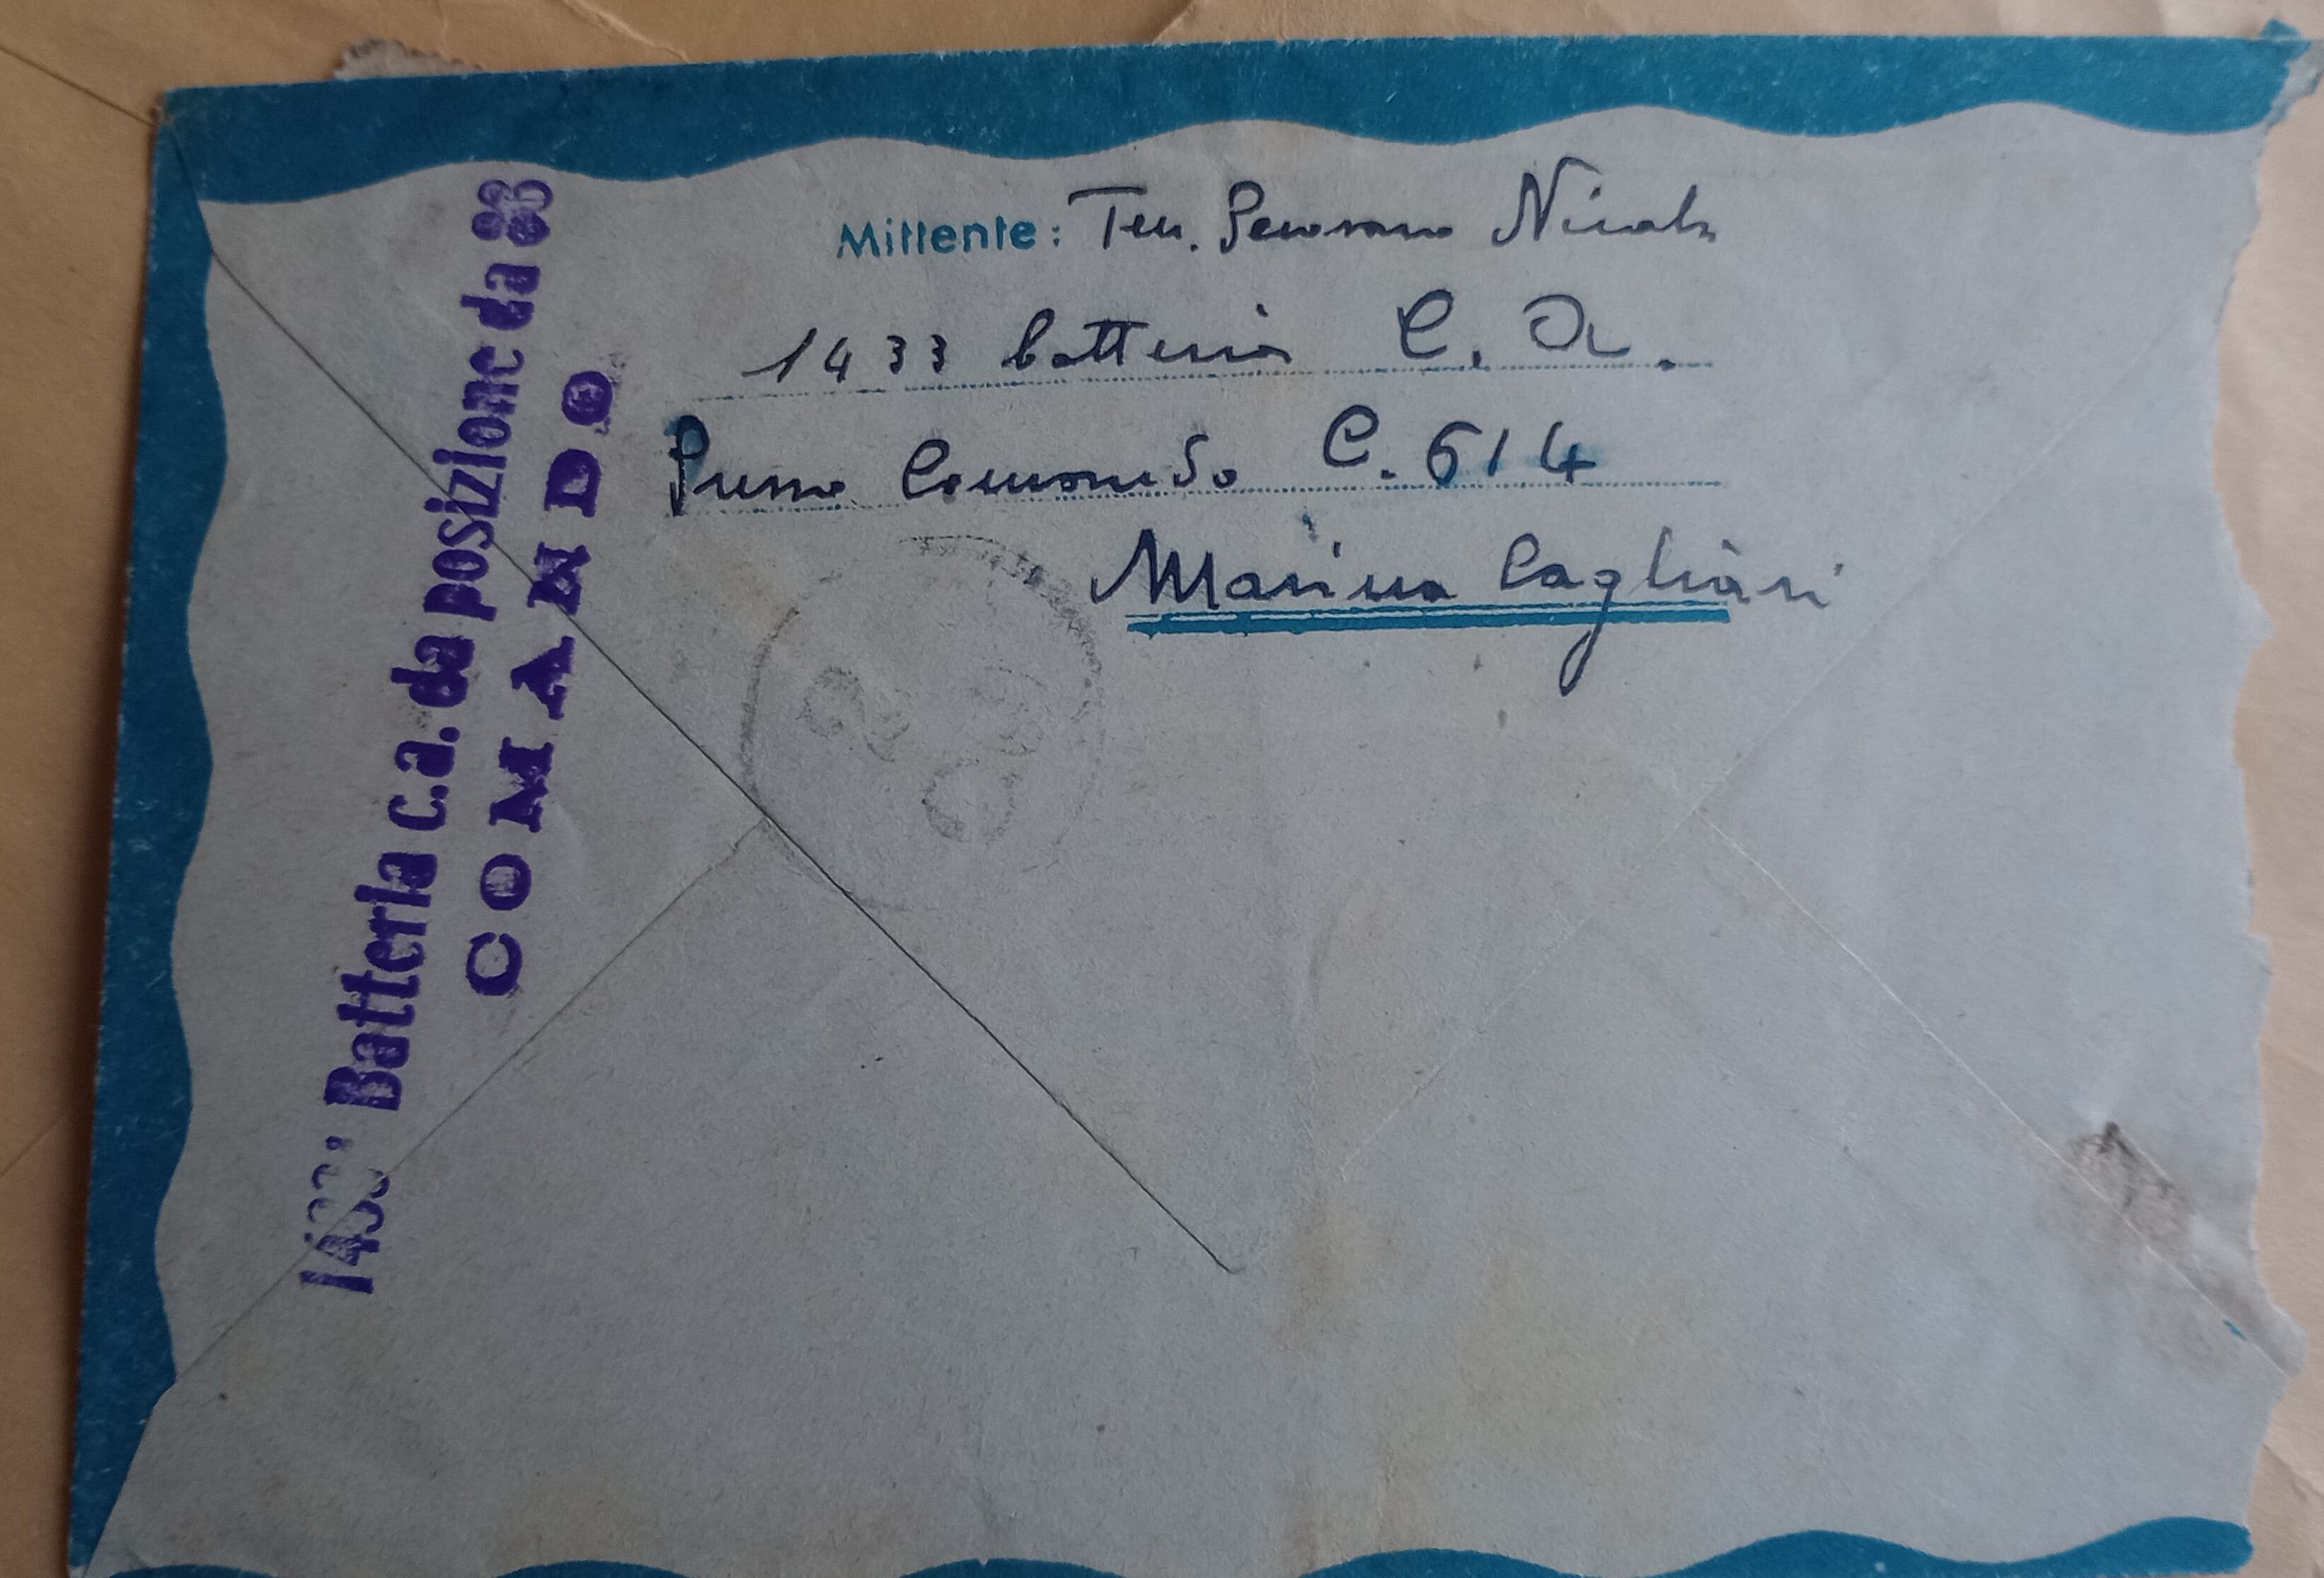 Mittente: Ten. Nicola
1433 batteria C. A.
Presso Comando C. 614
Marina Cagliari
1433ª Batteria c.a. da posizione da
COMANDO